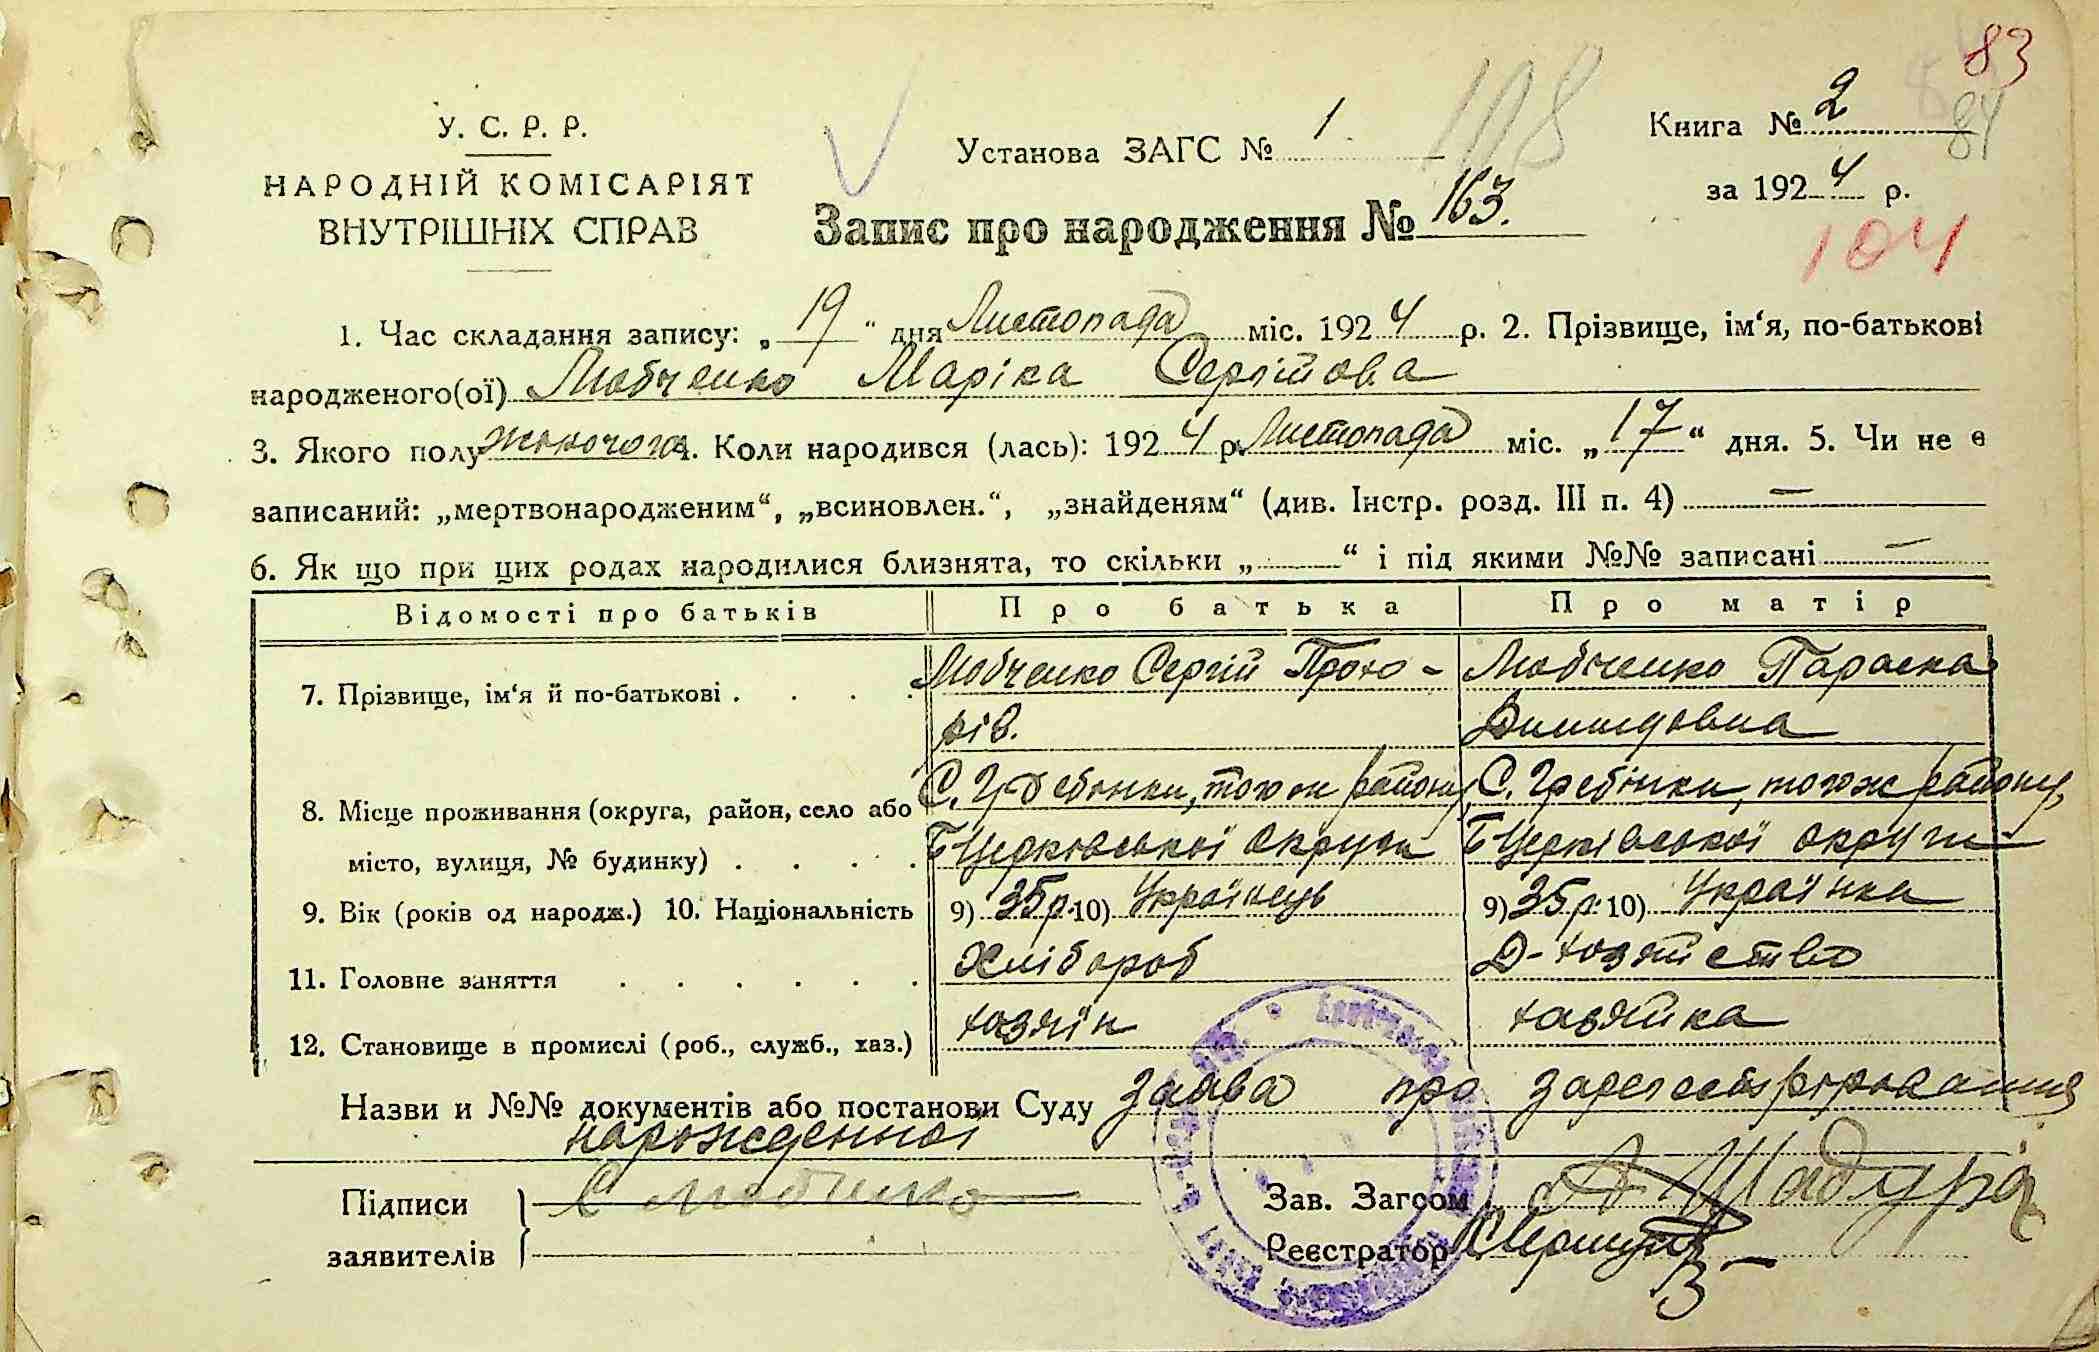 83
84
У. С. Р. Р.
НАРОДНІЙ КОМІСАРІЯТ
ВНУТРІШНІХ СПРАВ
Установа ЗАГС № 1
108
Книга № 2
за 1924 р.
Запис про народження № 163.
104
1. Час складання запису: „19“ дня Листопада міс. 1924 р. 2. Прізвище, ім‘я, по-батькові
народженого(ої) Любченко Маріка Сергійова
3. Якого полу жіночого 4. Коли народився (лась): 1924 р. Листопада міс. „17“ дня. 5. Чи не є
записаний: „мертвонародженим“, „всиновлен.“, „знайденям“ (див. Інстр. розд. III п. 4) —
6. Як що при цих родах народилися близнята, то скільки „ “ і під якими №№ записані —
Відомості про батьків Про батька Про матір
7. Прізвище, ім‘я й по-батькові . . . . Любченко Сергій Любченко Параска
8. Місце проживання (округа, район, село або С. Гребінки, того ж району, С. Гребінки, того ж району,
місто, вулиця, № будинку) . . . . Б Церківської округи Б Церківської округи
9. Вік (років од народж.) 10. Національність 9) 35 р. 10) Українець 9) 35 р. 10) Українка
11. Головне заняття . . . . . . Хлібороб Д-хозяйство
12. Становище в промислі (роб., служб., хаз.) хазяїн хазяйка
Назви и №№ документів або постанови Суду Заява про зарегестрировання
нарождення
Підписи С Любченко Зав. Загсом А Шадура
заявителів Реєстратор